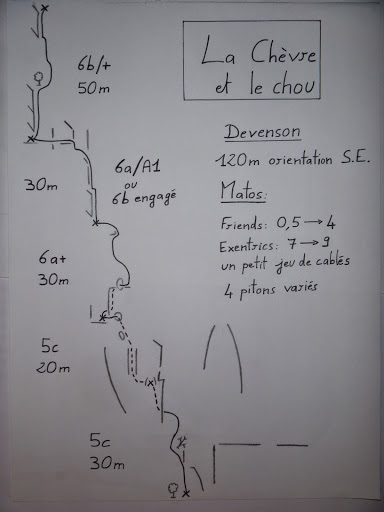 La Chèvre
et le chou
Devenson
120m orientation S.E.
Matos:
Friends: 0,5 → 4
Exentrics: 7 → 9
un petit jeu de cablés
4 pitons variés
6b/+
50m
30m
6a/A1
ou
6b engagé
6a+
30m
5c
20m
5c
30m